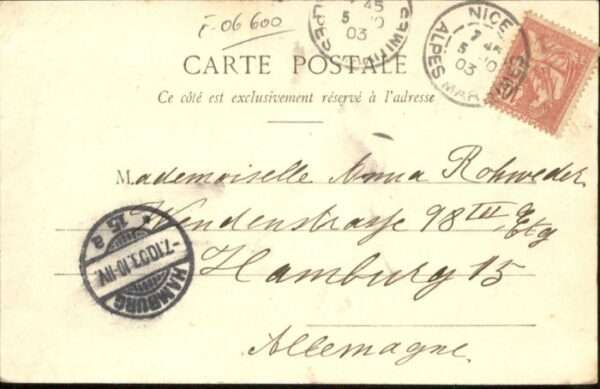 F-06600
7 45
5 10
03
NICE
7 45
5 10
03
ALPES MAR
CARTE POSTALE
Ce côté est exclusivement réservé à l'adresse
Mademoiselle Anna Rohweder
Wendenstrasse 98 III Etg
Hamburg 15
Allemagne
* 15 a
-7.10.03.10-11V.
HAMBURG